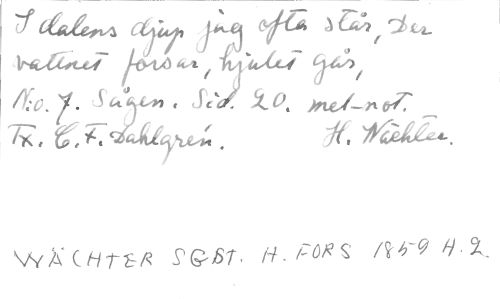 I dalens djup jag ofta står, Der
vattnet forsar, hjulet går,
N:o. 7. Sågen. Sid. 20. mel-not.
Tx. C. F. Dahlgren. H. Wächter.
WÄCHTER SGBT. H. FORS 1859 H. 2.